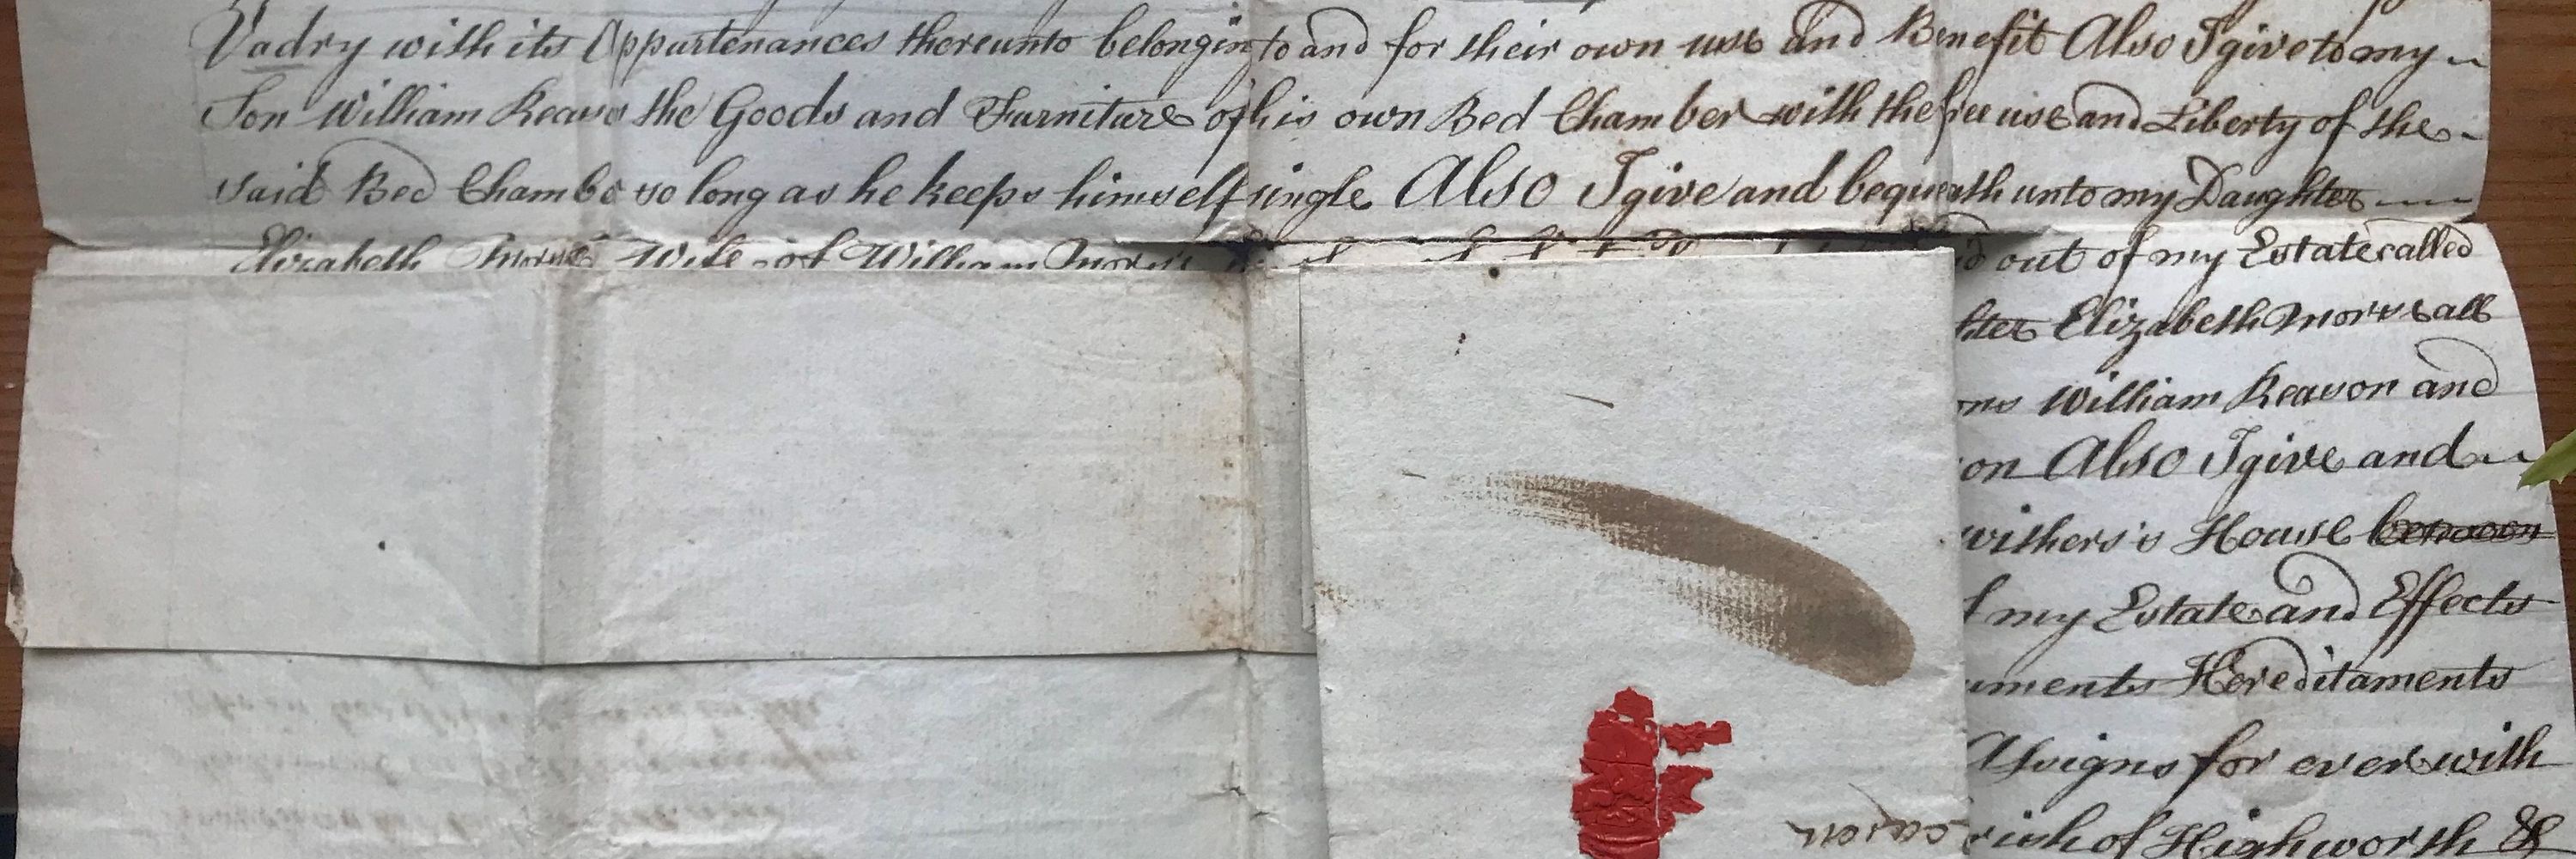 Vadry with its Appurtenances thereunto belonging to and for their own use and Benefit Also I give to my
Son William Reason the Goods and Furniture of his own Bed Chamber with the free use and Liberty of the
said Bed Chamber so long as he keeps himself single Also I give and bequeath unto my Daughter
Elizabeth Morse Wife of William Morse
out of my Estate called
hter Elizabeth Morse all
ons William Reason and
on Also I give and
withers's House
my Estate and Effects
ments Hereditaments
Assigns for ever with
rish of Highworth &